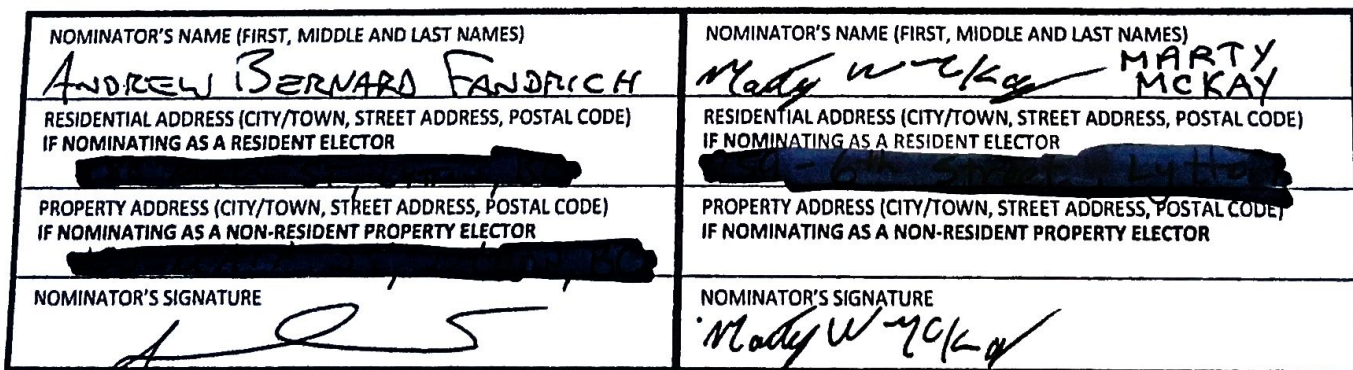 NOMINATOR'S NAME (FIRST, MIDDLE AND LAST NAMES)
ANDREW BERNARD FANDRICH
RESIDENTIAL ADDRESS (CITY/TOWN, STREET ADDRESS, POSTAL CODE)
IF NOMINATING AS A RESIDENT ELECTOR
PROPERTY ADDRESS (CITY/TOWN, STREET ADDRESS, POSTAL CODE)
IF NOMINATING AS A NON-RESIDENT PROPERTY ELECTOR
NOMINATOR'S SIGNATURE
NOMINATOR'S NAME (FIRST, MIDDLE AND LAST NAMES)
Marty W McKay MARTY
MCKAY
RESIDENTIAL ADDRESS (CITY/TOWN, STREET ADDRESS, POSTAL CODE)
IF NOMINATING AS A RESIDENT ELECTOR
PROPERTY ADDRESS (CITY/TOWN, STREET ADDRESS, POSTAL CODE)
IF NOMINATING AS A NON-RESIDENT PROPERTY ELECTOR
NOMINATOR'S SIGNATURE
Marty W McKay